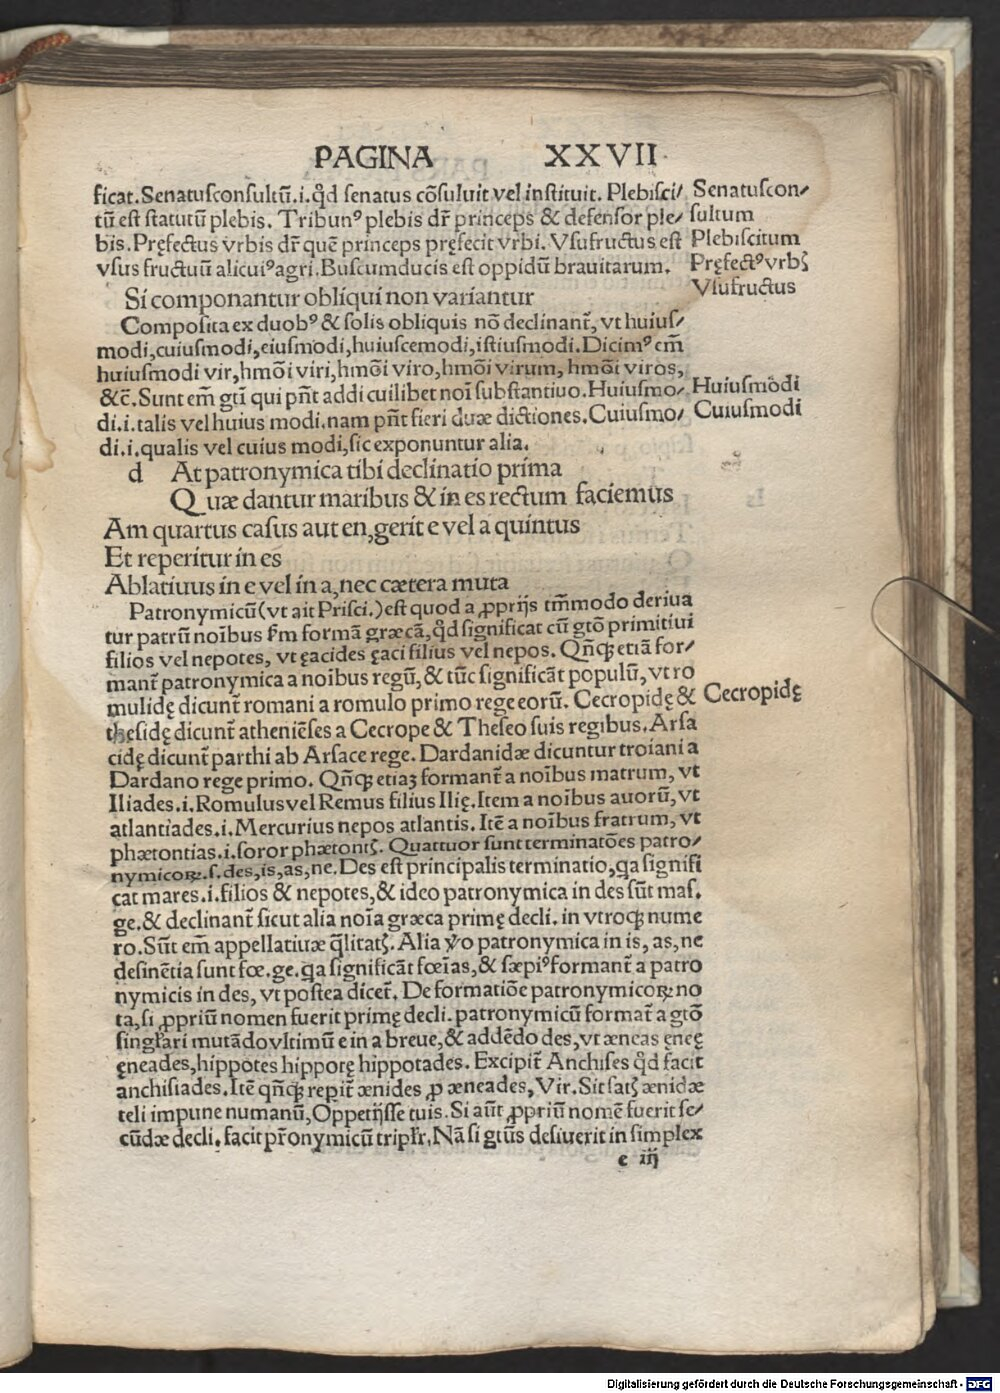 PAGINA XXVII
ficat.Senatuſconſultū.i.qd̄ ſenatus cōſuluit vel inſtituit. Plebiſci/ Senatuſcon/
tū eſt ſtatutū plebis. Tribunꝰ plebis dr̄ princeps & defenſor ple/ ſultum
bis.Pręfectus vrbis dr̄ quē princeps pręfecit vrbi. Vſufructus eſt Plebiſcitum
vſus fructuū alicuiꝰ agri.Buſcumducis eſt oppidū brauitarum. Pręfectꝰ vrbꝭ
Vſufructus
Si componantur obliqui non variantur
Compoſita ex duobꝰ & ſolis obliquis nō declinant̄, vt huiuſ/
modi,cuiuſmodi,eiuſmodi,huiuſcemodi,iſtiuſmodi.Dicimꝰ em̄
huiuſmodi vir,hmōi viri,hmōi viro,hmōi virum, hmōi viros,
&c̄.Sunt em̄ gtī qui pn̄t addi cuilibet noī ſubſtantiuo.Huiuſmo/ Huiuſmodi
di.i.talis vel huius modi.nam pn̄t fieri duæ dictiones.Cuiuſmo/ Cuiuſmodi
di.i.qualis vel cuius modi,ſic exponuntur alia.
d At patronymica tibi declinatio prima
Quæ dantur maribus & in es rectum faciemus
Am quartus caſus aut en,gerit e vel a quintus
Et reperitur in es
Ablatiuus in e vel in a,nec cætera muta
Patronymicū(vt ait Priſci.)eſt quod a ꝓprijs tm̄modo deriua
tur patrū noībus ẜm formā græcā,qd̄ ſignificat cū gtō primitiui
filios vel nepotes, vt ęacides ęaci filius vel nepos. Qn̄qꝫ etiā for/
mant̄ patronymica a noībus regū,& tūc ſignificāt populū,vt ro
mulidę dicunt̄ romani a romulo primo rege eorū. Cecropidę & Cecropidę
theſidę dicunt̄ atheniēſes a Cecrope & Theſeo ſuis regibus.Arſa
cidę dicunt̄ parthi ab Arſace rege. Dardanidæ dicuntur troiani a
Dardano rege primo. Qn̄qꝫ etiaꝫ formant̄ a noībus matrum, vt
Iliades.i.Romulus vel Remus filius Ilię.Item a noībus auorū,vt
atlantiades.i.Mercurius nepos atlantis. Itē a noībus fratrum, vt
phætontias.i.ſoror phætontꝭ. Quattuor ſunt terminatōes patro/
nymicoꝝ.ſ.des,is,as,ne.Des eſt principalis terminatio,qa ſignifi
cat mares.i.filios & nepotes,& ideo patronymica in des ſūt maſ.
ge.& declinant̄ ſicut alia noīa græca primę decli. in vtroqꝫ nume
ro.Sūt em̄ appellatiuæ q̄litatꝭ.Alia ꝟo patronymica in is, as,ne
deſinētia ſunt fœ.ge.qa ſignificāt fœīas,& ſæpiꝰ formant̄ a patro
nymicis in des, vt poſtea dicet̄. De formatiōe patronymicoꝝ no
ta,ſi ꝓpriū nomen fuerit primę decli. patronymicū format̄ a gtō
ſingl̄ari mutādo vltimū e in a breue,& addēdo des,vt æneas ęneę
ęneades,hippotes hippotę hippotades. Excipit̄ Anchiſes qd̄ facit
anchiſiades.Itē qn̄qꝫ repit̄ ænides ꝓ æneades, Vir.Sit ſatꝭ ænidæ
teli impune numanū,Oppetijſſe tuis. Si aūt ꝓpriū nomē fuerit ſe/
cūdæ decli. facit pr̄onymicū tripl̄r.Nā ſi gtūs deſiuerit in ſimplex
e iij
Digitalisierung gefördert durch die Deutsche Forschungsgemeinschaft - DFG